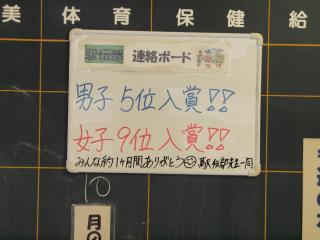 美 体 育 保 健 給
駅伝部 連絡ボード
男子 5位入賞!!
女子 9位入賞!!
みんな約1ヶ月間ありがとう☺ 駅伝部先生一同
10
月の